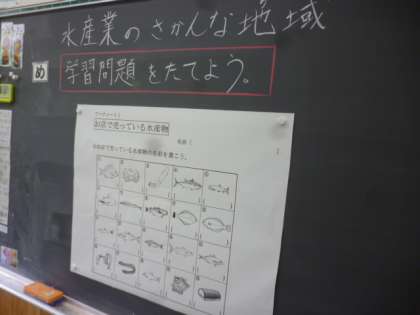 水産業のさかんな地域
め
学習問題をたてよう。
ワークシート1
お店で売っている水産物
名前（
お店で売っている水産物の名前を書こう。